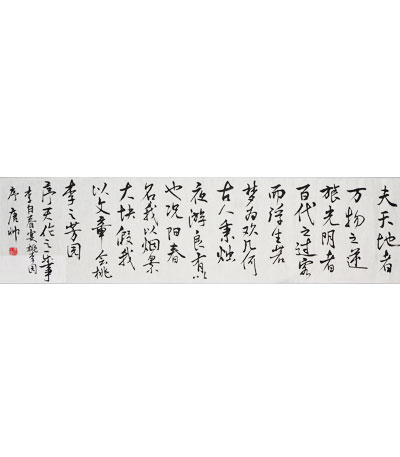 夫天地者
万物之逆
旅光阴者
百代之过客
而浮生若
梦为欢几何
古人秉烛
夜游良有以
也况阳春
召我以烟景
大块假我
以文章会桃
李之芳园
序天伦之乐事
李白春宴桃李园
序唐帅